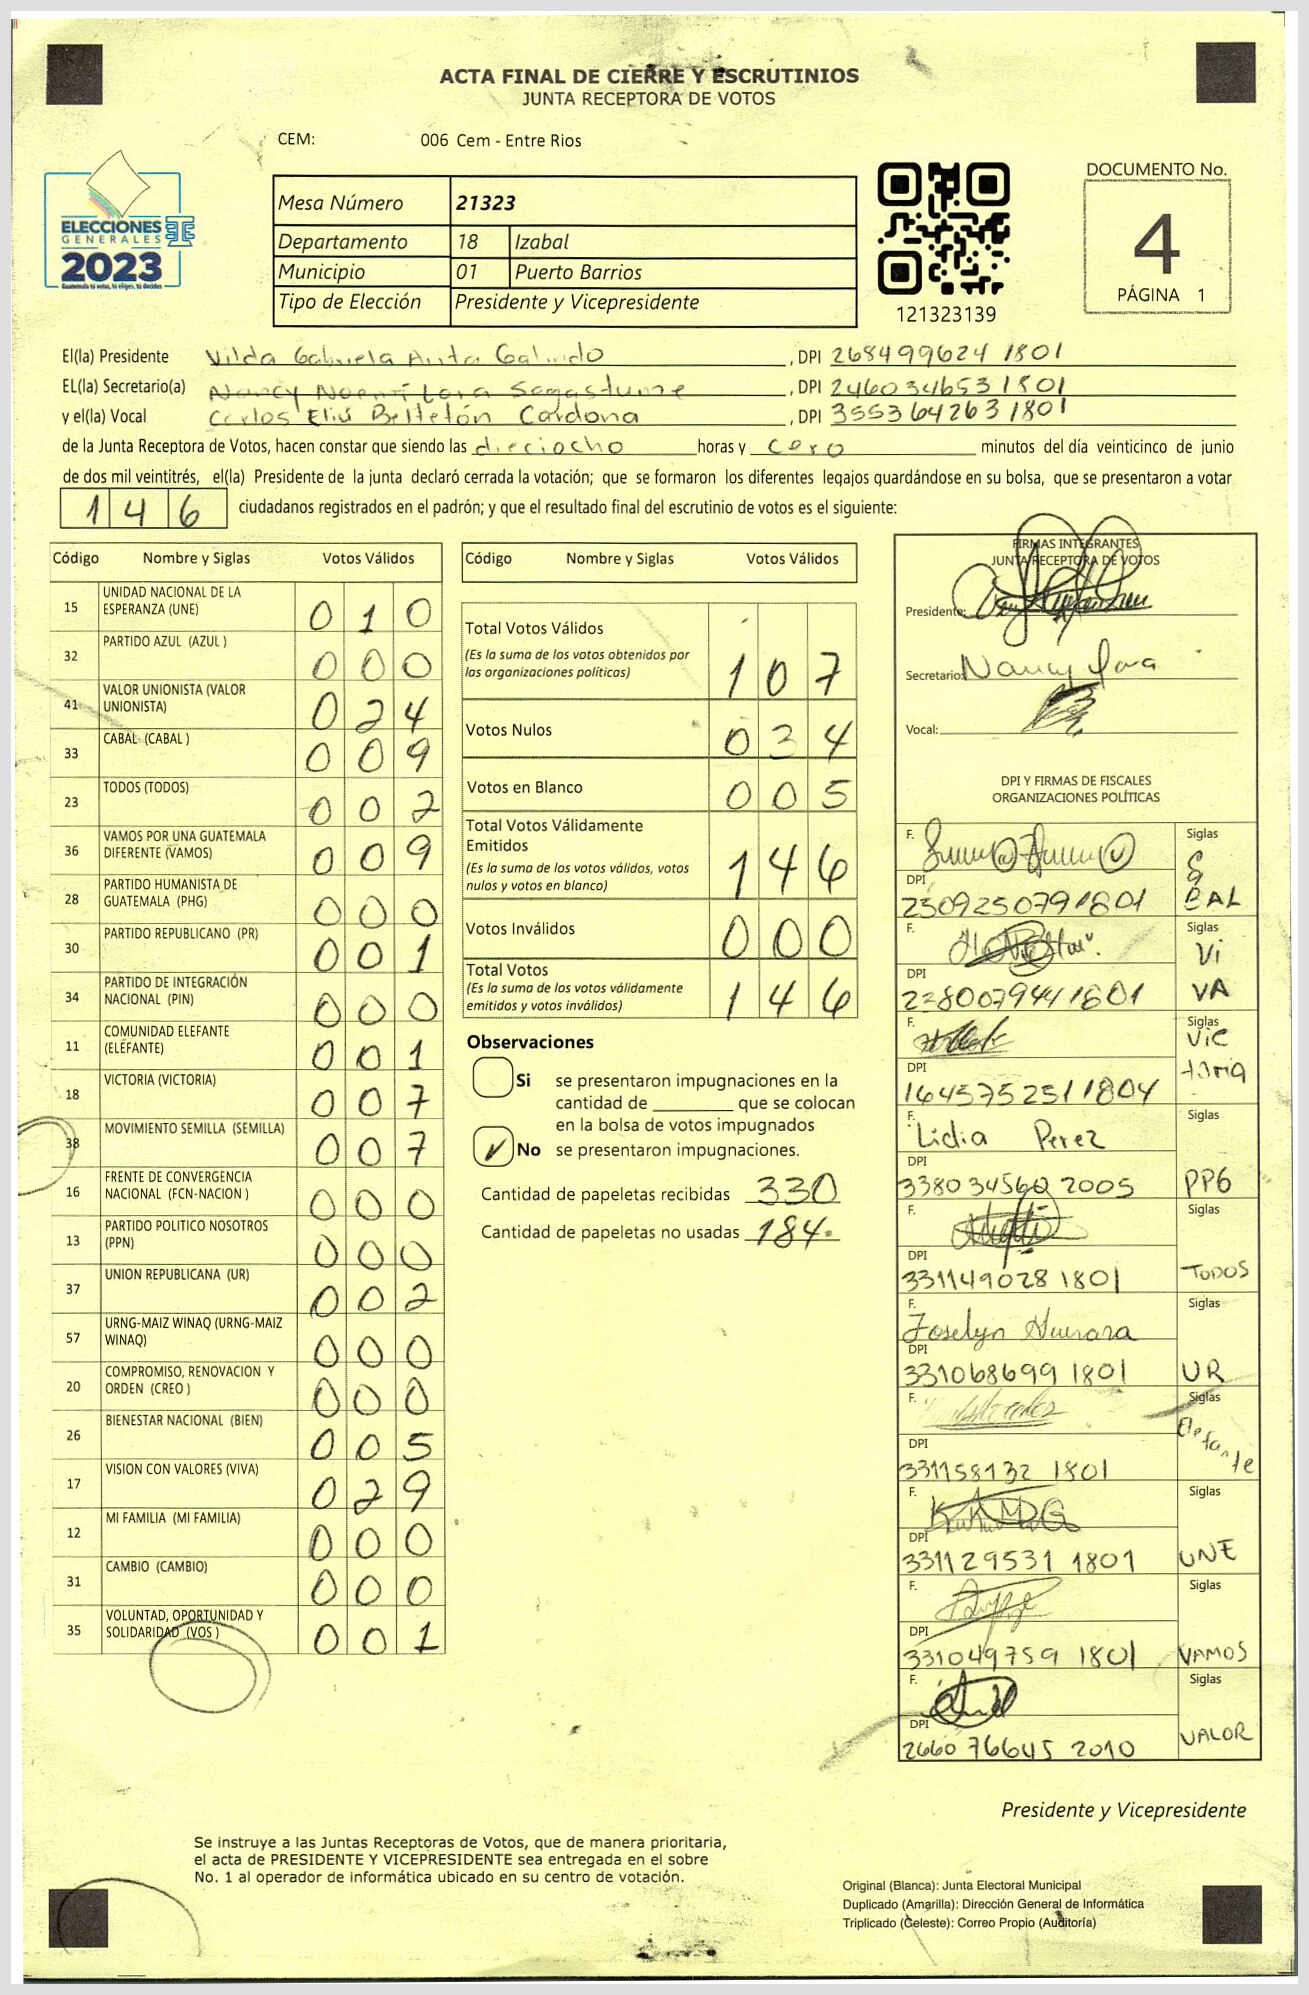 ACTA FINAL DE CIERRE Y ESCRUTINIOS
JUNTA RECEPTORA DE VOTOS
CEM: 006 Cem - Entre Rios
ELECCIONES
GENERALES
2023
Guatemala tú votas, tú eliges, tú decides
Mesa Número 21323
Departamento 18 Izabal
Municipio 01 Puerto Barrios
Tipo de Elección Presidente y Vicepresidente
121323139
DOCUMENTO No.
4
PÁGINA 1
El(la) Presidente Vilda Gabriela Galindo , DPI 268499624 1801
EL(la) Secretario(a) Nancy Noemí Lora Sagastume , DPI 246034653 1801
y el(la) Vocal Carlos Eliú Beltetón Cardona , DPI 355364263 1801
de la Junta Receptora de Votos, hacen constar que siendo las dieciocho horas y cero minutos del día veinticinco de junio
de dos mil veintitrés, el(la) Presidente de la junta declaró cerrada la votación; que se formaron los diferentes legajos guardándose en su bolsa, que se presentaron a votar
146 ciudadanos registrados en el padrón; y que el resultado final del escrutinio de votos es el siguiente:
Código Nombre y Siglas Votos Válidos
15 UNIDAD NACIONAL DE LA ESPERANZA (UNE) 010
32 PARTIDO AZUL (AZUL ) 000
41 VALOR UNIONISTA (VALOR UNIONISTA) 024
33 CABAL (CABAL ) 009
23 TODOS (TODOS) 002
36 VAMOS POR UNA GUATEMALA DIFERENTE (VAMOS) 009
28 PARTIDO HUMANISTA DE GUATEMALA (PHG) 000
30 PARTIDO REPUBLICANO (PR) 001
34 PARTIDO DE INTEGRACIÓN NACIONAL (PIN) 000
11 COMUNIDAD ELEFANTE (ELEFANTE) 001
18 VICTORIA (VICTORIA) 007
38 MOVIMIENTO SEMILLA (SEMILLA) 007
16 FRENTE DE CONVERGENCIA NACIONAL (FCN-NACION ) 000
13 PARTIDO POLITICO NOSOTROS (PPN) 000
37 UNION REPUBLICANA (UR) 002
57 URNG-MAIZ WINAQ (URNG-MAIZ WINAQ) 000
20 COMPROMISO, RENOVACION Y ORDEN (CREO ) 000
26 BIENESTAR NACIONAL (BIEN) 005
17 VISION CON VALORES (VIVA) 029
12 MI FAMILIA (MI FAMILIA) 000
31 CAMBIO (CAMBIO) 000
35 VOLUNTAD, OPORTUNIDAD Y SOLIDARIDAD (VOS ) 001
Código Nombre y Siglas Votos Válidos
Total Votos Válidos 107
(Es la suma de los votos obtenidos por
las organizaciones políticas)
Votos Nulos 034
Votos en Blanco 005
Total Votos Válidamente
Emitidos 146
(Es la suma de los votos válidos, votos
nulos y votos en blanco)
Votos Inválidos 000
Total Votos 146
(Es la suma de los votos válidamente
emitidos y votos inválidos)
Observaciones
Si se presentaron impugnaciones en la
cantidad de ________ que se colocan
en la bolsa de votos impugnados
✓ No se presentaron impugnaciones.
Cantidad de papeletas recibidas 330
Cantidad de papeletas no usadas 184
FIRMAS INTEGRANTES
JUNTA RECEPTORA DE VOTOS
Presidente:
Secretario: Nancy Lora
Vocal:
DPI Y FIRMAS DE FISCALES
ORGANIZACIONES POLÍTICAS
F. Siglas
DPI 2509250791801 CABAL
F. Siglas
DPI 2280079441801 VIVA
F. Siglas
DPI 1645752511804 Victoria
F. Lidia Perez Siglas
DPI 338034560 2005 PPG
F. Siglas
DPI 331149028 1801 TODOS
F. Joselyn Siglas
DPI 331068699 1801 UR
F. Siglas
DPI 331158132 1801 Elefante
F. Siglas
DPI 331129531 1801 UNE
F. Siglas
DPI 331049759 1801 VAMOS
F. Siglas
DPI 2660 76645 2010 VALOR
Presidente y Vicepresidente
Se instruye a las Juntas Receptoras de Votos, que de manera prioritaria,
el acta de PRESIDENTE Y VICEPRESIDENTE sea entregada en el sobre
No. 1 al operador de informática ubicado en su centro de votación.
Original (Blanca): Junta Electoral Municipal
Duplicado (Amarilla): Dirección General de Informática
Triplicado (Celeste): Correo Propio (Auditoría)